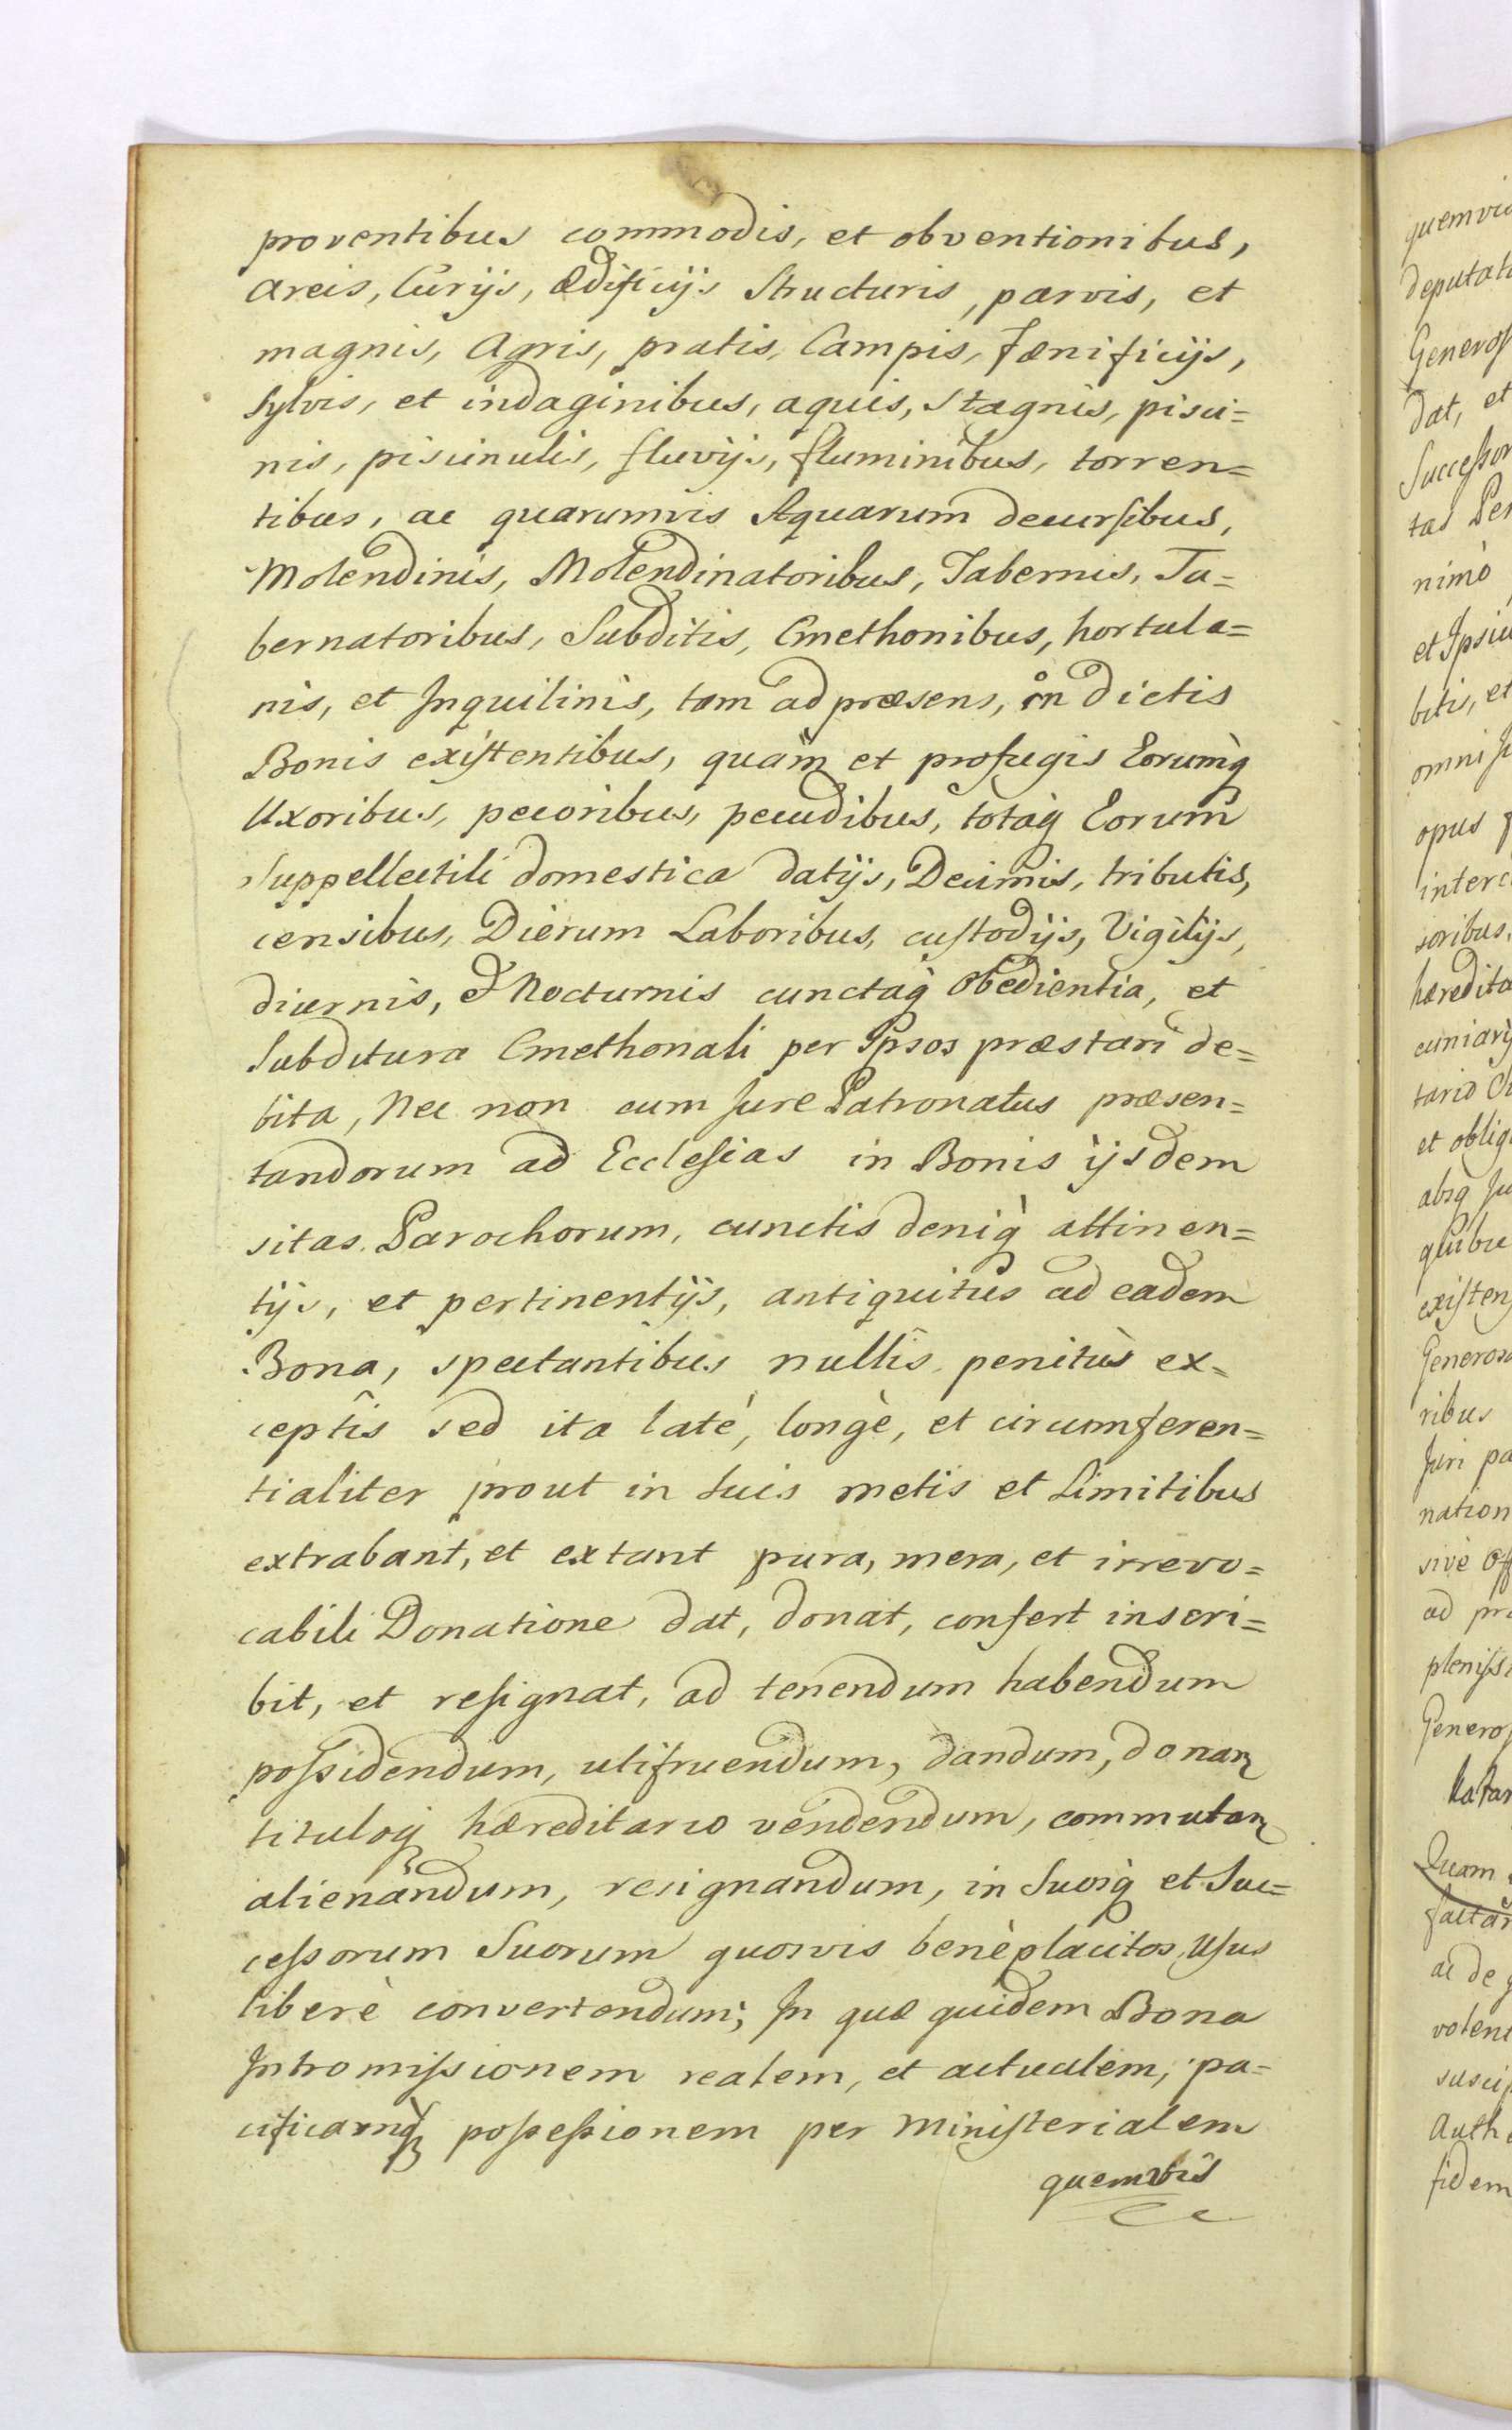 proventibus commodis, et obventionibus,
areis, Curijs, ædificijs Structuris, parvis, et
magnis, Agris, pratis, Campis, fænificijs,
Sylvis, et indaginibus, aquis, Stagnis, pisci=
nis, piscinulis, fluvijs, fluminibus, torren=
tibus, ac quarumvis Aquarum decursibus,
Molendinis, Molendinatoribus, Tabernis, Ta=
bernatoribus, Subditis, Cmethonibus, hortula=
nis, et Inquilinis, tam ad præsens, in dictis
Bonis existentibus, quàm et profugis Eorumq̀
Uxoribus, pecoribus, pecudibus, totaq̀ Eorum
Suppellectili domestica datijs, Decimis, tributis,
censibus, Dierum Laboribus, custodijs, Vigilijs,
diurnis, & Nocturnis cunctaq̀ obedientia, et
Subditura Cmethonali per Ipsos præstari de=
bita, Nec non cum Jure Patronatus præsen=
tandorum ad Ecclesias in Bonis ijsdem
sitas Parochorum, cunctis deniq̀ attinen=
tijs, et pertinentijs, antiquitus ad eadem
Bona, spectantibus nullis penitùs ex=
ceptis sed ita laté, longè, et circumferen=
tialiter prout in suis metis et Limitibus
extrabant, et extant pura, mera, et irrevo=
cabili Donatione dat, donat, confert inscri=
bit, et resignat, ad tenendum habendum
possidendum, utifruendum, dandum, donan
tituloq hæreditario vendendum, commutan
alienandum, resignandum, in Suosq̀ et Suc=
cessorum Suorum quosvis benèplacitos Usus
liberè convertendum; In quæ quidem Bona
Intromissionem realem, et actualem, pa=
cificamq̀ possessionem per Ministerialem
quemvis
quemvis
deputat
Generos
dat, et
Successor
tas Per
nimò
et Ipsiu
bitis, et
omni Ju
opus
interc
soribus.
hæredita
cuniarij
tario
et oblig
absq̀ Ju
quibu
existen
Generos
ribus
Juri pa
nation
sivè Off
ad pr
plenissi
Generos
Quam
factam
ac de
volent
suscip
Auth
fidem